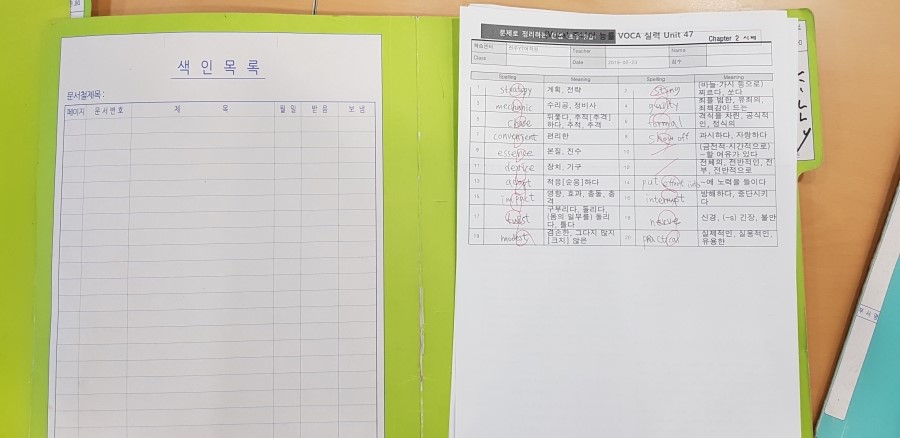 색 인 목 록
문서철제목 :
페이지 문서번호 제 목 월일 받음 보냄
문제로 정리하는
VOCA 실력 Unit 47
Chapter 2
학습관리 Teacher Name
Class Date 점수
Spelling Meaning Spelling Meaning
1 strategy 계획, 전략 2 sting (바늘·가시 등으로) 찌르다, 쏘다
3 mechanic 수리공, 정비사 4 guilty 죄를 범한, 유죄의, 죄책감이 드는
5 chase 뒤쫓다, 추적[추격]하다, 추적, 추격 6 formal 격식을 차린, 공식적인, 정식의
7 convenient 편리한 8 show off 과시하다, 자랑하다
9 essence 본질, 진수 10 (금전적·시간적으로) ~할 여유가 있다
11 device 장치, 기구 12 전체의, 전반적인, 전부, 전반적으로
13 adapt 적응[순응]하다 14 put effort into ~에 노력을 들이다
15 impact 영향, 효과, 충돌, 충격 16 interrupt 방해하다, 중단시키다
17 twist 구부리다, 돌리다, (몸의 일부를) 돌리다, 틀다 18 nerve 신경, (-s) 긴장, 불안
19 modest 겸손한, 그다지 많지[크지] 않은 20 practical 실제적인, 실용적인, 유용한